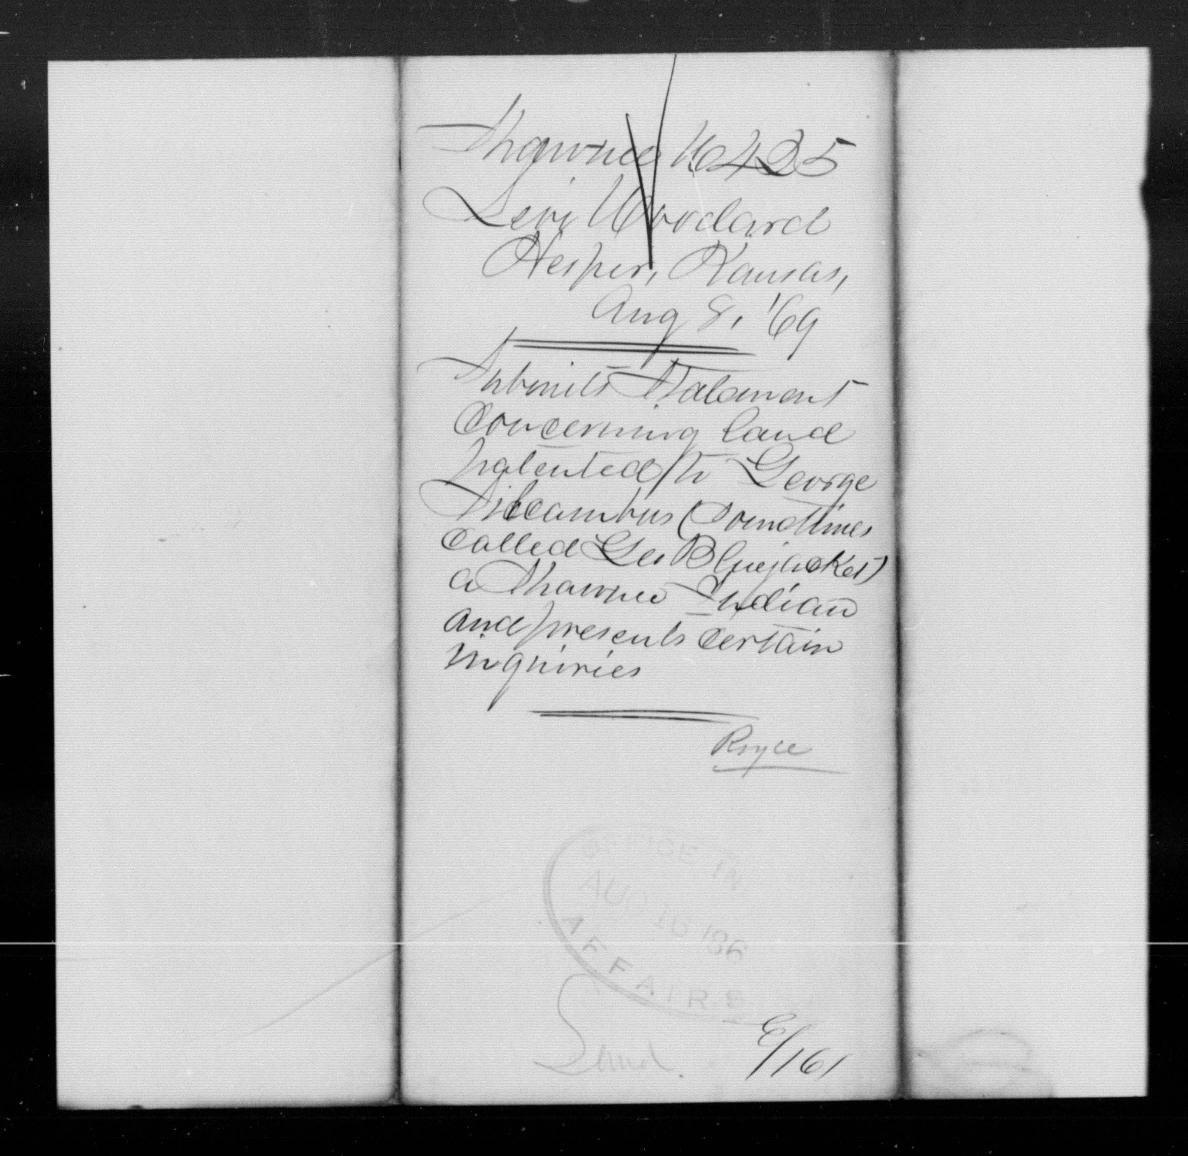 Shawnee W 425
Levi Woodard
Hesper, Kansas,
Aug 8, '69
Submits Statement
concerning land
patented to George
(Sometimes
called Geo Bluejacket)
a Shawnee Indian
and presents certain
inquiries
Royce
OFFICE IN
AUG 16 186
AFFAIRS
Land.
E/161